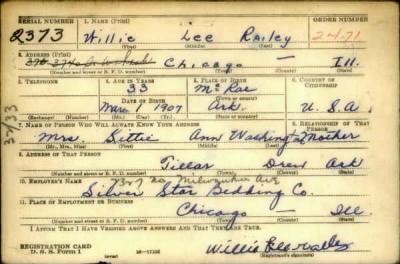 SERIAL NUMBER 1. NAME (Print) ORDER NUMBER
2373 Willie Lee Railey 2471
(First) (Middle) (Last)
2. ADDRESS (Print)
Chicago — Ill.
(Number and street or R. F. D. number) (Town) (County) (State)
3. TELEPHONE 4. AGE IN YEARS 5. PLACE OF BIRTH 6. COUNTRY OF CITIZENSHIP
33 McRae
DATE OF BIRTH (Town or county)
Mar. 1907 Ark. U.S.A.
(Exchange) (No.) (Mo.) (Day) (Yr.) (State or country)
7. NAME OF PERSON WHO WILL ALWAYS KNOW YOUR ADDRESS 8. RELATIONSHIP OF THAT PERSON
Mrs. Settie Ann Washing Mother
(Mr., Mrs., Miss) (First) (Middle) (Last)
9. ADDRESS OF THAT PERSON
Tillar Drew Ark
(Number and street or R. F. D. number) (Town) (County) (State)
10. EMPLOYER'S NAME No. Milwaukee Ave
Silver Star Bedding Co.
11. PLACE OF EMPLOYMENT OR BUSINESS
Chicago — Ill
(Number and street or R. F. D. number) (Town) (County) (State)
I AFFIRM THAT I HAVE VERIFIED ABOVE ANSWERS AND THAT THEY ARE TRUE.
REGISTRATION CARD
D. S. S. Form 1 16—17105 (Registrant's signature)